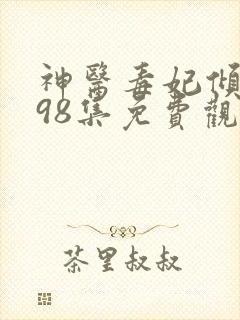 神醫毒妃傾
98集免費觀
茶里叔叔